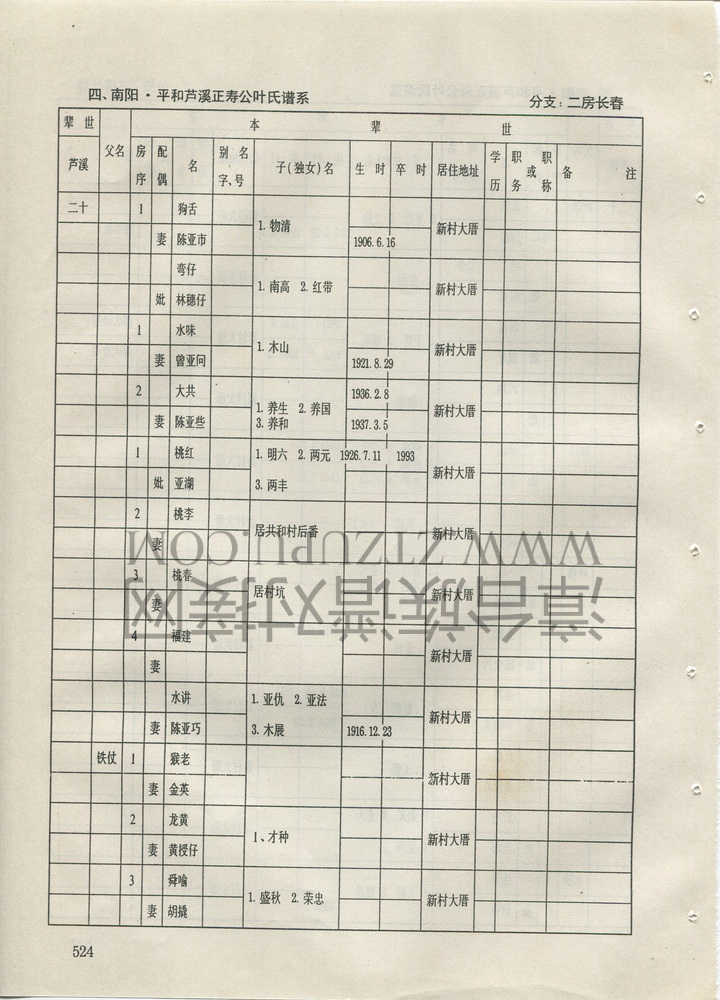 四、南阳·平和芦溪正寿公叶氏谱系 分支：二房长春
辈世 父名 本辈世
芦溪 房序 配偶 名 别名字、号 子(独女)名 生时 卒时 居住地址 学历 职务或职称 备注
二十 1 狗舌 1.物清 新村大厝
妻 陈亚市 1906.6.16
弯仔 1.南高 2.红带 新村大厝
妣 林穗仔
1 水味 1.木山 新村大厝
妻 曾亚问 1921.8.29
2 大共 1.养生 2.养国 1936.2.8 新村大厝
妻 陈亚些 3.养和 1937.3.5
1 桃红 1.明六 2.两元 1926.7.11 1993 新村大厝
妣 亚湖 3.两丰
2 桃李 居共和村后番 新村大厝
妻
3 桃春 居村坑 新村大厝
妻
4 福建 新村大厝
妻
水讲 1.亚仇 2.亚法 新村大厝
妻 陈亚巧 3.木展 1916.12.23
铁仗 1 猴老 新村大厝
妻 金英
2 龙黄 1、才种 新村大厝
妻 黄授仔
3 舜喻 1.盛秋 2.荣忠 新村大厝
妻 胡撬
524
WWW.ZTZUPU.COM
漳台族谱对接网